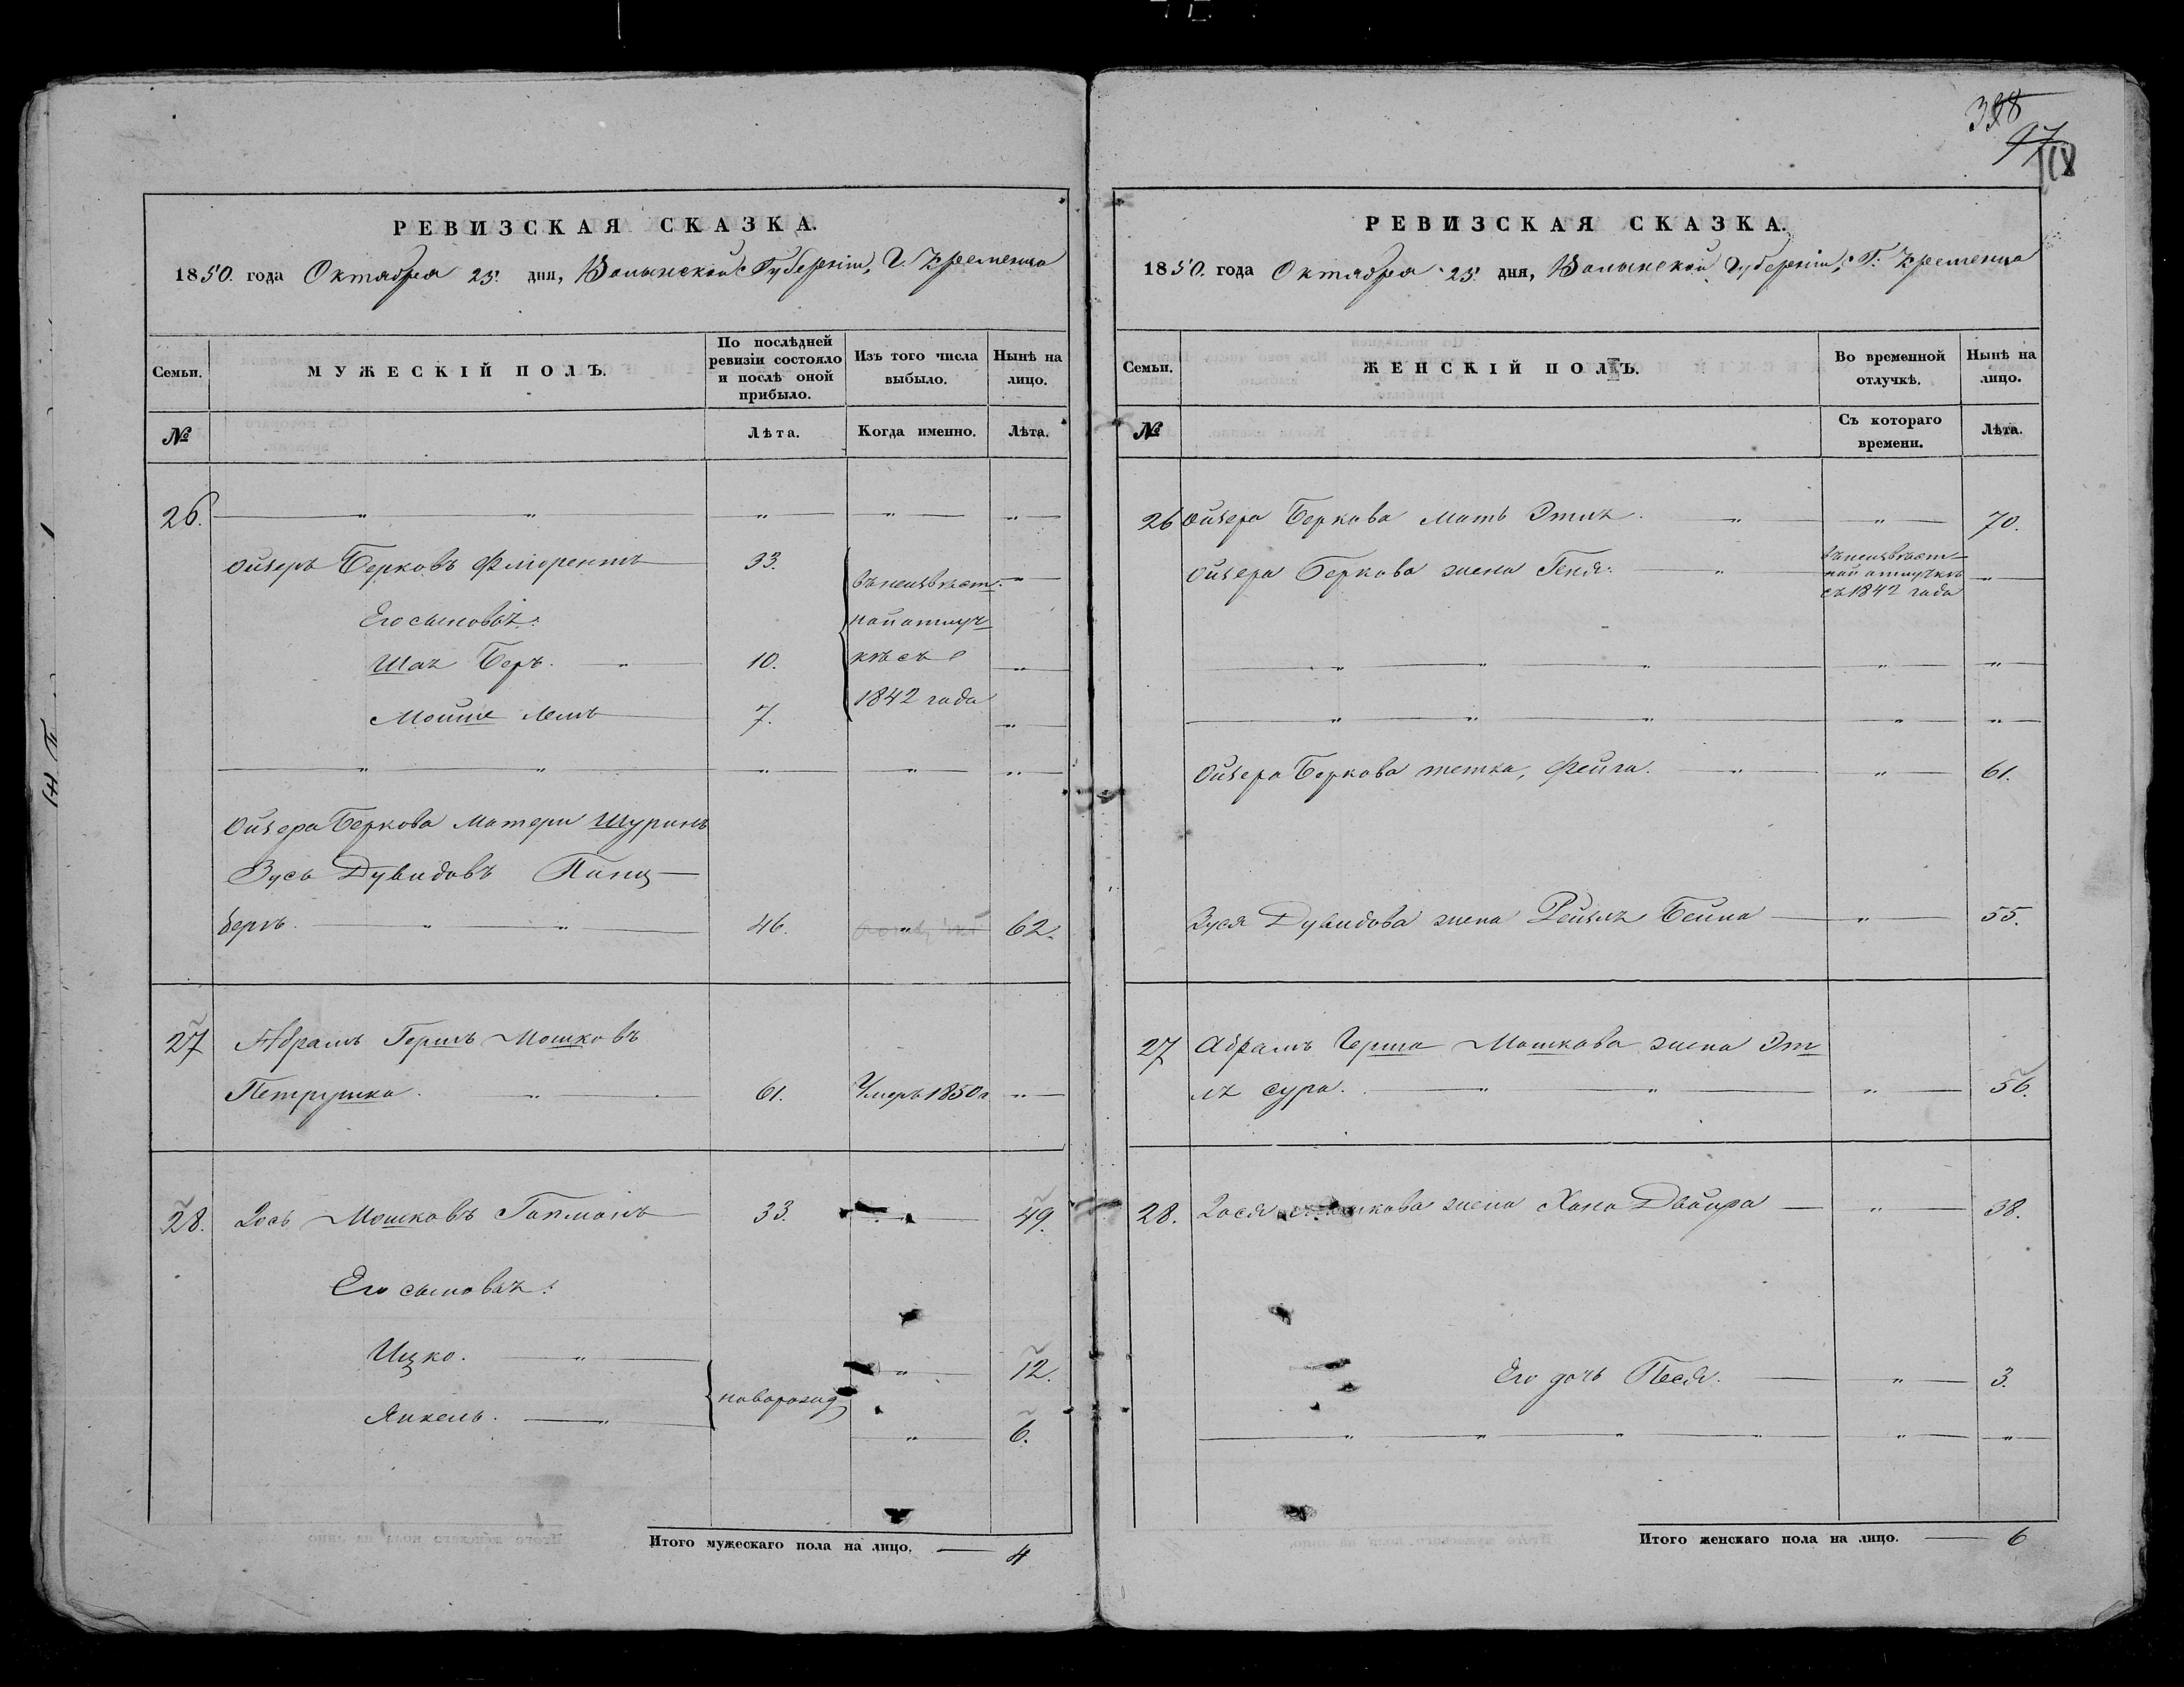 398
97
РЕВИЗСКАЯ СКАЗКА.
1850. года Октября 25. дня, Волынской Губерніи, Г. Кременца
Семьи.
МУЖЕСКІЙ ПОЛЪ.
По послѣдней ревизіи состояло и послѣ оной прибыло.
Изъ того числа выбыло.
Нынѣ на лицо.
№
Лѣта.
Когда именно.
Лѣта.
26.
Ойзеръ Берковъ 33.
въ неизвѣст-
ной отлуч
кѣ съ
1842 года
Его сыновья:
Шая Беръ. 10.
Мойше 7.
Ойзера Беркова Матери Шуринъ
Зусь Дувидовъ Панц
беръ. 46. 62.
27 Абрамъ Гершъ Мошковъ
Петрушка. 61. Умеръ 1850 г
28. Іось Мошковъ Гапманъ 33. 49.
Его сыновья:
Ицко. 12.
новорожд
Янкель. 6.
Итого мужескаго пола на лицо. 4
РЕВИЗСКАЯ СКАЗКА.
1850. года Октября 25. дня, Волынской Губерніи, Г. Кременца
Семьи.
ЖЕНСКІЙ ПОЛЪ.
Во временной отлучкѣ.
Нынѣ на лицо.
№
Съ котораго времени.
Лѣта.
26 Ойзера Беркова Мать Этля 70.
Ойзера Беркова жена Геня.
въ неизвѣст-
ной отлучкѣ
съ 1842 года
Ойзера Беркова тетка, Фейга. 61.
Зуся Дувидова жена Рейзля Бейла 55.
27 Абрамъ Герша Мошкова жена Эт
ля сура. 56.
28. Іося Мошкова жена Хана Двойра 38.
Его дочь Песя. 3.
Итого женскаго пола на лицо. 6